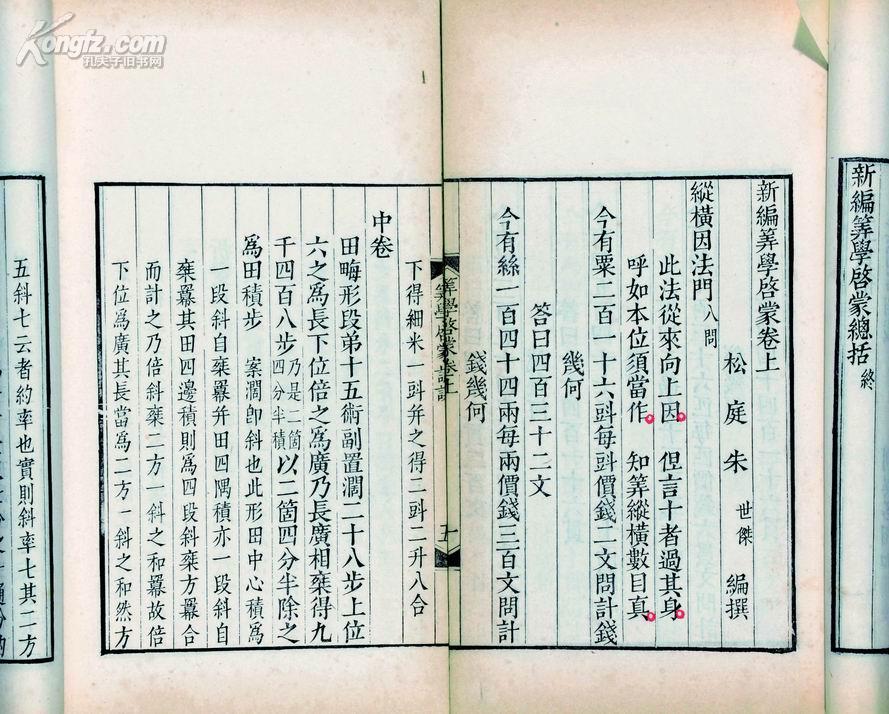 Kongfz.com
孔夫子旧书网
新編筭學啓蒙總括 終
新編筭學啓蒙卷上
松庭朱世傑編撰
縱橫因法門 八問
此法從來向上因 但言十者過其身
呼如本位須當作 知筭縱橫數目真
今有粟二百一十六㪷每㪷價錢二文問計錢
幾何
荅曰四百三十二文
今有絲一百四十四兩每兩價錢三百文問計
錢幾何
筭學啓蒙卷上
五
下得細米一㪷并之得二㪷二升八合
中卷
田畮形段弟十五術副置濶二十八步上位
六之爲長下位倍之爲廣乃長廣相乗得九
千四百八步 乃是二箇四分半積 以二箇四分半除之
爲田積步 案濶卽斜也此形田中心積爲
一段斜自乗羃并田四隅積亦一段斜自
乗羃其田四邊積則爲四段斜乗方羃合
而計之乃倍斜乗二方一斜之和羃故倍
下位爲廣其長當爲二方一斜之和然方
五斜七云者約率也實則斜率七其二方